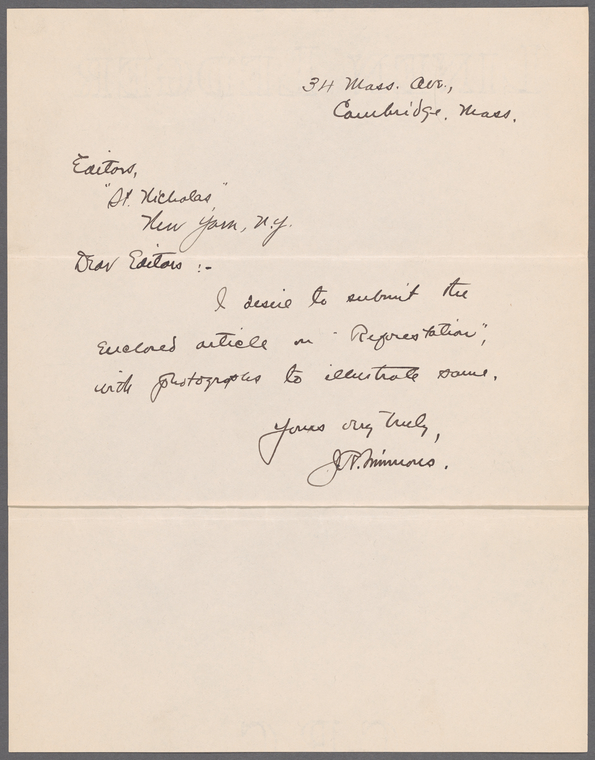 34 Mass. Ave.,
Cambridge, Mass.
Editors,
"St. Nicholas"
New York, N.Y.
Dear Editors :-
I desire to submit the
enclosed article on "Reforestation",
with photographs to illustrate same.
Yours very truly,
J.R. Simmons.